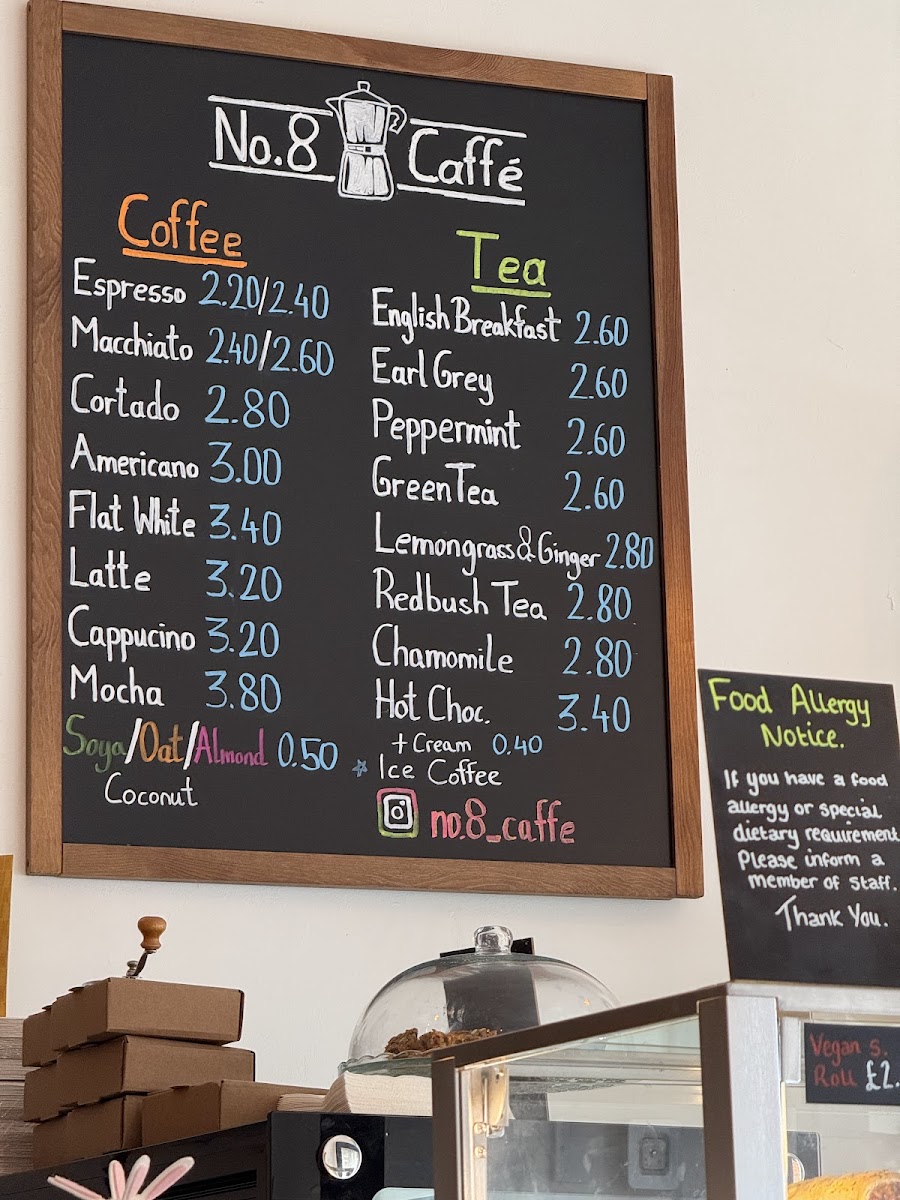 No.8 Caffé
Coffee
Espresso 2.20/2.40
Macchiato 2.40/2.60
Cortado 2.80
Americano 3.00
Flat White 3.40
Latte 3.20
Cappucino 3.20
Mocha 3.80
Soya/Oat/Almond 0.50
Coconut
Tea
English Breakfast 2.60
Earl Grey 2.60
Peppermint 2.60
Green Tea 2.60
Lemongrass & Ginger 2.80
Redbush Tea 2.80
Chamomile 2.80
Hot Choc. 3.40
+ Cream 0.40
Ice Coffee
no.8_caffe
Food Allergy
Notice.
If you have a food
allergy or special
dietary requirement
Please inform a
member of staff.
Thank You.
Vegan S.
Roll £2.